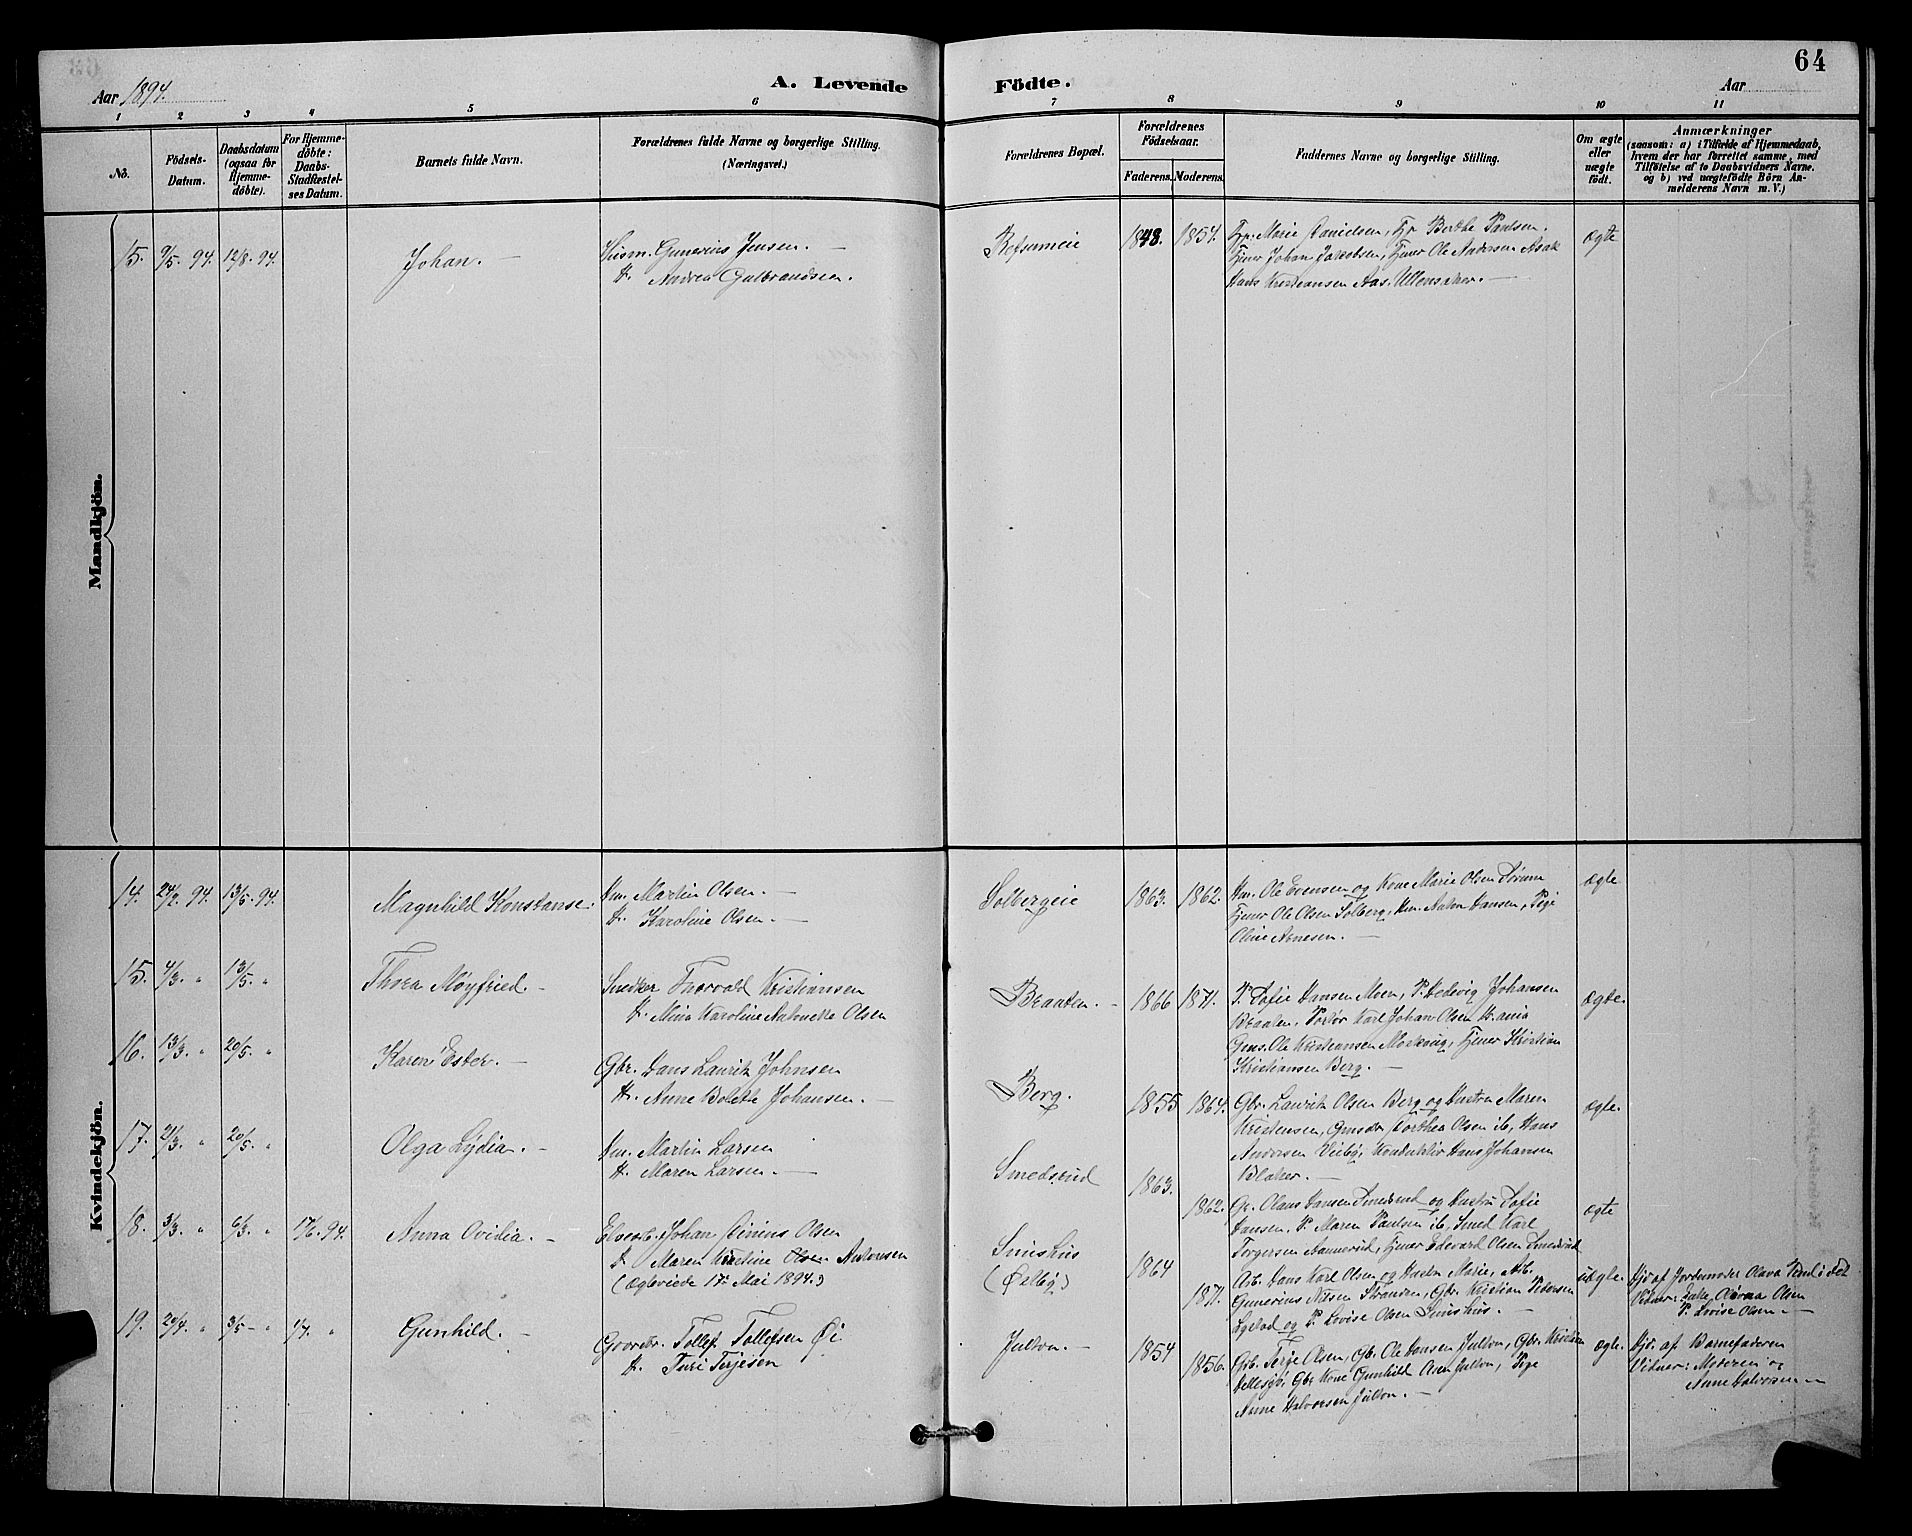 64
Aar 1894.
A. Levende Födte.
Aar
1 2 3 4 5 6 7 8 9 10 11
No.
Födsels-Datum.
Daabsdatum (ogsaa for Hjemme-döbte).
For Hjemme-döbte: Daabs-Stadfæstel-ses Datum.
Barnets fulde Navn.
Forældrenes fulde Navne og borgerlige Stilling.
(Næringsvei.)
Forældrenes Bopæl.
Forældrenes Födselsaar.
Faderens. Moderens.
Faddernes Navne og borgerlige Stilling.
Om ægte eller uægte födt.
Anmærkninger
(saasom: a) i Tilfælde af Hjemmedaab,
hvem der har forrettet samme, med
Tilföielse af to Daabsvidners Navne.
og b) ved uægtefödte Börn An-
melderens Navn m. V.)
Mandkjön.
15. 9/5. 94. 12/8. 94. Johan. — Husm. Gunerius Jensen. —
H. Andrea Gulbrandsen.
1848. 1854.
Marie Danielsen, Berthe Paulsen.
Tjener Johan Jakobsen, Tjener Ole Andersen Asak
Hans Kristiansen Aas. Ullensaker. —
Ægte
Kvindekjön.
14. 24/2. 94. 13/5. 94. Magnhild Konstanse. Hm. Martin Olsen. —
H. Karoline Olsen. —
Solbergeie 1863. 1862.
Hm. Ole Evensen og Kone Marie Olsen
Tjener Ole Olsen Solberg, Hm. Anton Hansen, Pige
Oline Arnesen. —
Ægte
15. 4/3. " 13/5. " Thora Møyfried. — Snedker Thorvald Kristiansen
H. Mina Karoline Antonette Olsen
Braaten. — 1866 1871.
P. Sofie Hansen Moen, P. Hedevig Johansen
Braaten, Karl Johan Olsen
Ole Kristiansen Tjener Kristian
Kristiansen Berg. —
Ægte.
16. 13/3. " 20/5. " Karen Ester. — Gbr. Hans Lauritz Johnsen
H. Anne Bolette Johansen. —
Berg. 1855 1864.
Gbr. Lauritz Olsen Berg og Hustru Maren
Kristensen, Dorthea Olsen ib, Hans
Andersen Hans Johansen
Blaker. —
Ægte.
17. 20/5. " Olga Lydia. — Hm. Martin Larsen
H. Maren Larsen. —
Smedsrud 1863. 1862.
Olaus Hansen Smedsrud og Hustru Sofie
Hansen, P. Maren Paulsen ib, Smed Karl
Torgersen Tjener Edevard Olsen Smedsrud
Ægte
18. 3/3. " 6/3. " 17/6. 94. Anna Ovidia. — Johan Olsen
H. Maren Kristine Olsen Antonsen
(Ægteviede 17de Mai 1894.)
1864 1871.
Arb. Hans Karl Olsen og Hustru Marie, Arb.
Gunerius Nilsen Stranden, Gbr. Kristian Pedersen
og P. Lovise Olsen —
uægte.
Hjd. af Jordemoder Olava
Vidner: Enke Olivia Olsen
P. Lovise Olsen. —
19. 20/4. " 3/5 — " 1/7. " Gunhild. — Gbr. Tollef Tollefsen Øi
H. Turi Terjesen
Julton. — 1854 1856.
Gbr. Terje Olsen, Gb. Ole Hansen Julton, Gbr. Kristian
Gbr. Kone Gunhild Olsen Julton, Pige
Anne Halvorsen Julton. —
Ægte.
Hjd. af Barnefaderen
Vidner: Moderen og
Anne Halvorsen —